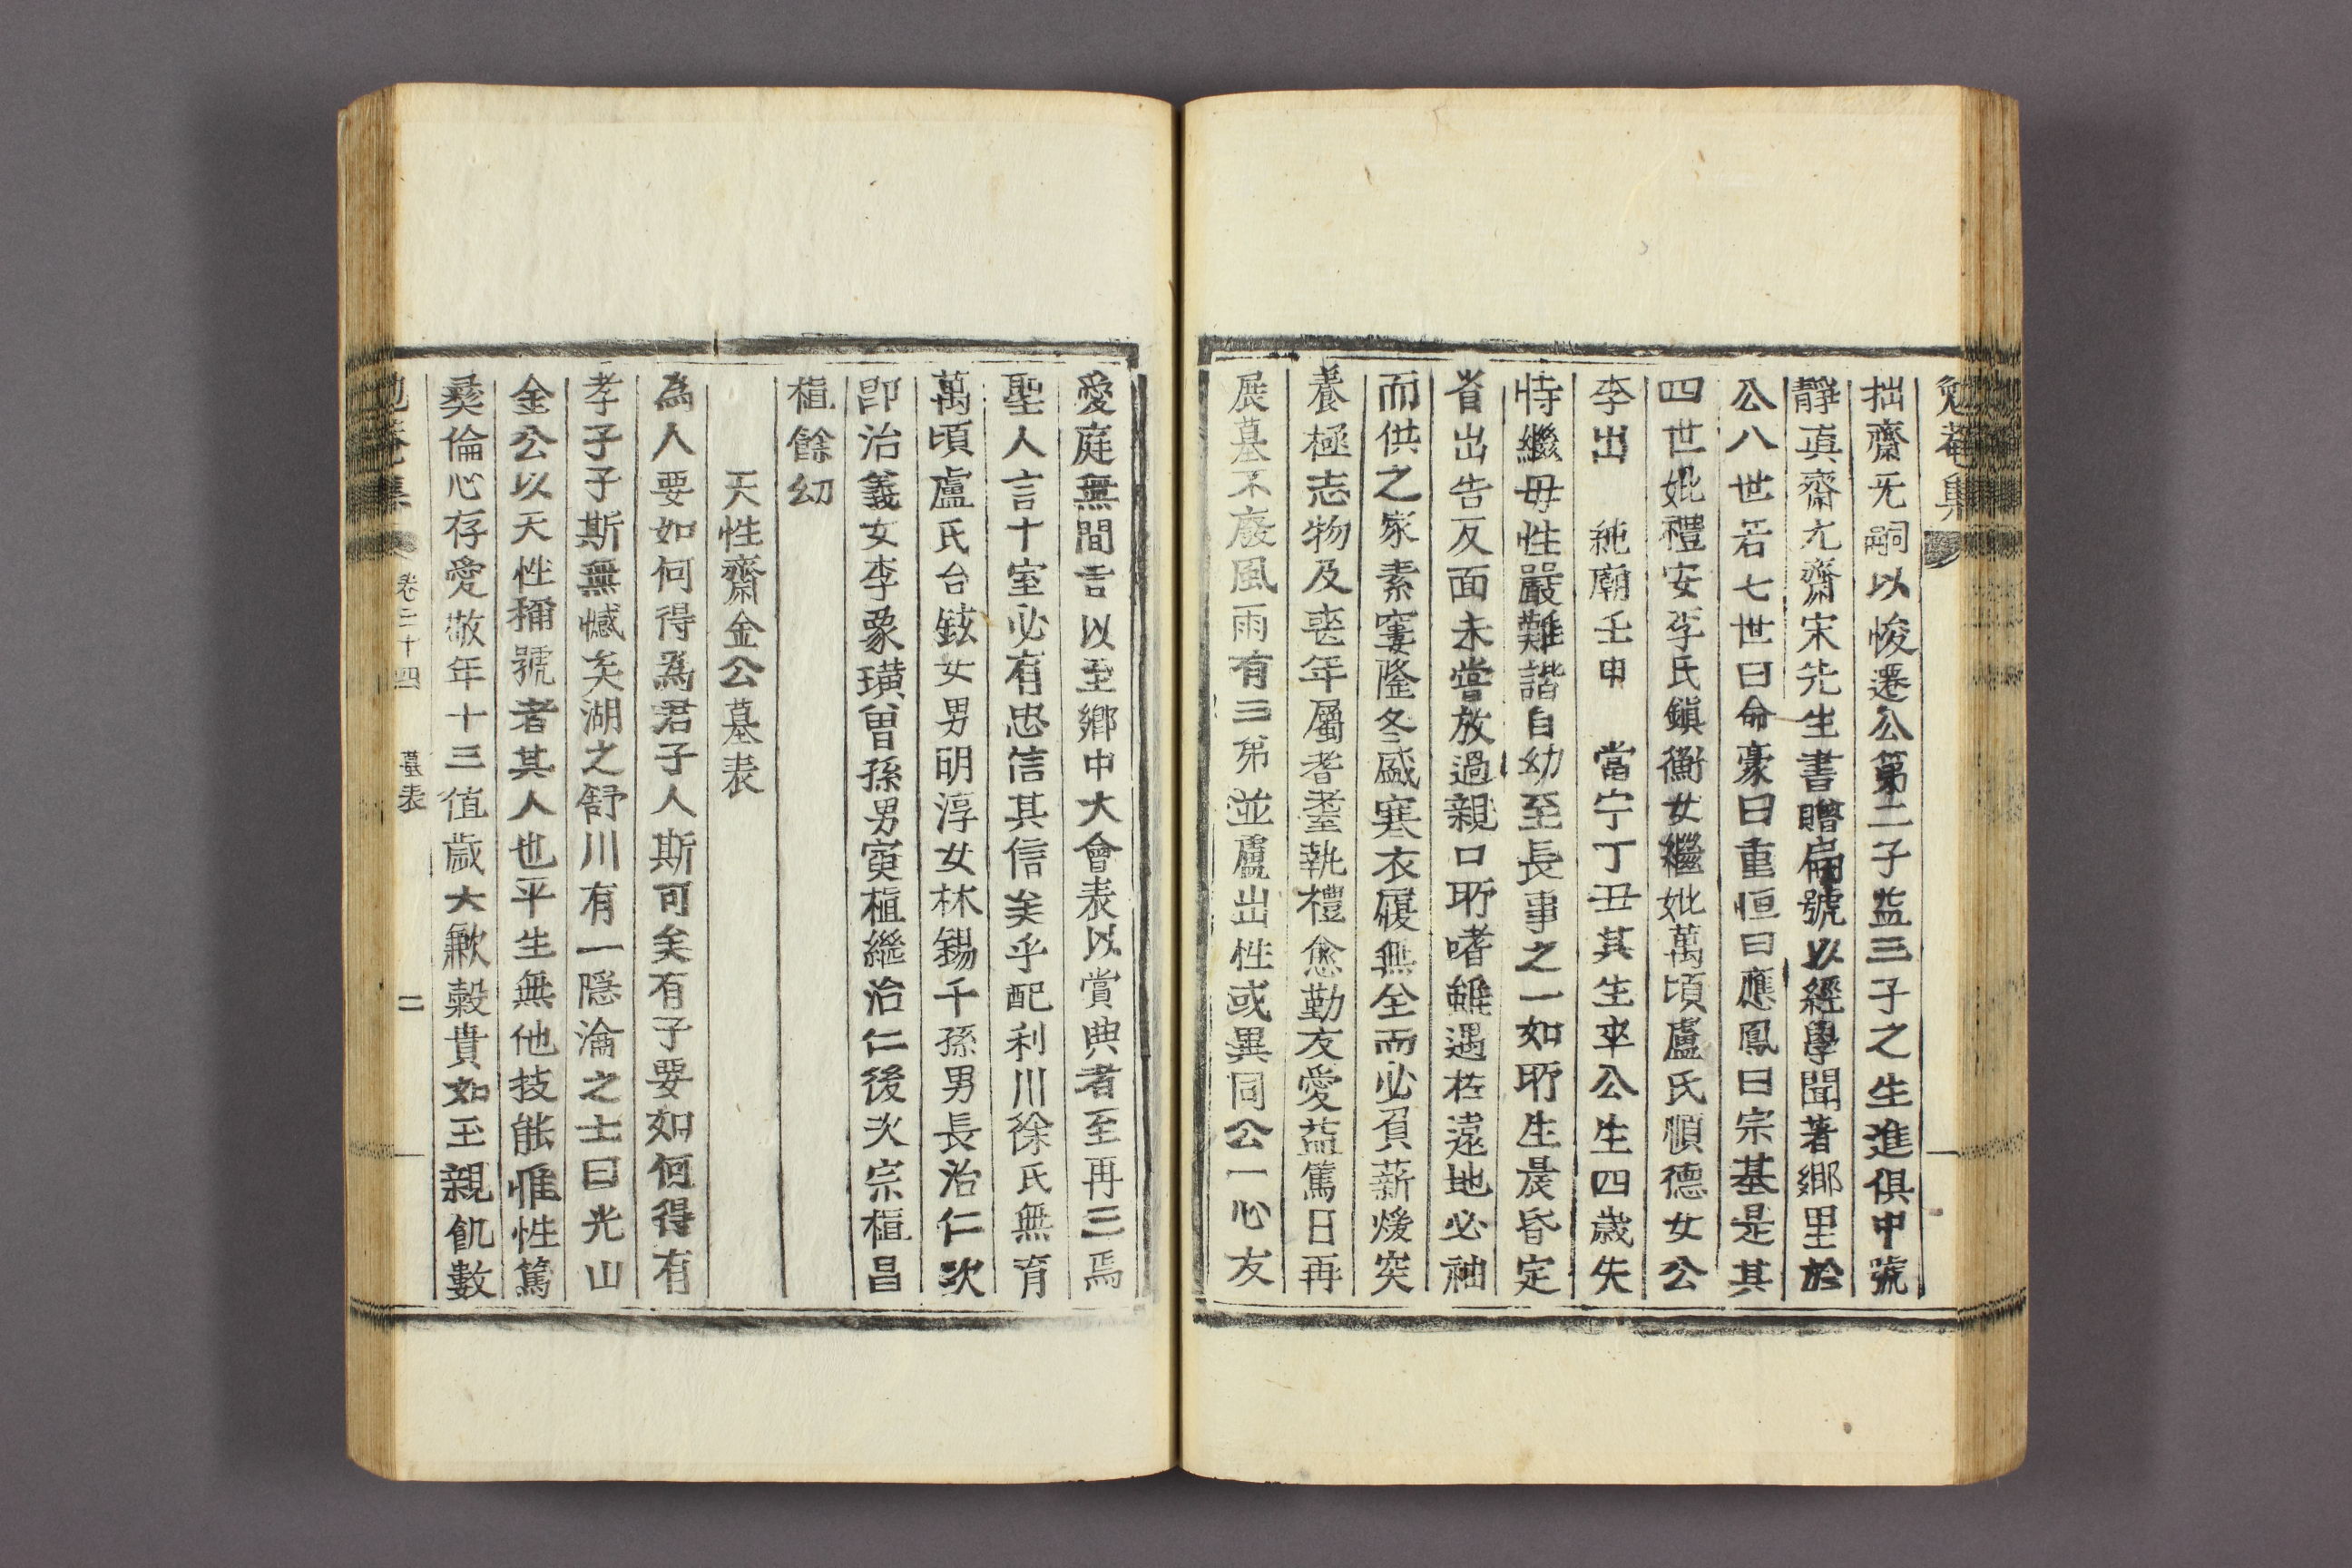 勉菴集
拙齋无嗣以悛遷公第二子益三子之生進俱中號
靜眞齋尤齋宋先生書贈扁號以經學聞著鄕里於
公八世若七世曰命豪曰重恒曰應鳳曰宗基是其
四世妣禮安李氏鎭衡女繼妣萬頃盧氏順德女公
李出 純廟壬申 當宁丁丑其生卒公生四歲失
恃繼母性嚴難諧自幼至長事之一如所生晨昏定
省出告反面未嘗放過親口所嗜雖遇在遠地必袖
而供之家素窶隆冬盛寒衣履無全而必負薪煖突
養極志物及喪年屬耆耋執禮愈勤友愛益篤日再
展墓不廢風雨有三弟並盧出性或異同公一心友
愛庭無間言以至鄕中大會表以賞典者至再三焉
聖人言十室必有忠信其信矣乎配利川徐氏無育
萬頃盧氏台鉉女男明淳女林錫千孫男長治仁次
卽治義女李象璜曾孫男寅植繼治仁後次宗植昌
植餘幼
天性齋金公墓表
為人要如何得爲君子人斯可矣有子要如何得有
孝子子斯無憾矣湖之舒川有一隱淪之士曰光山
金公以天性稱號者其人也平生無他技能惟性篤
彛倫心存愛敬年十三值歲大歉穀貴如玉親飢數
勉菴集 卷二十四 墓表 二